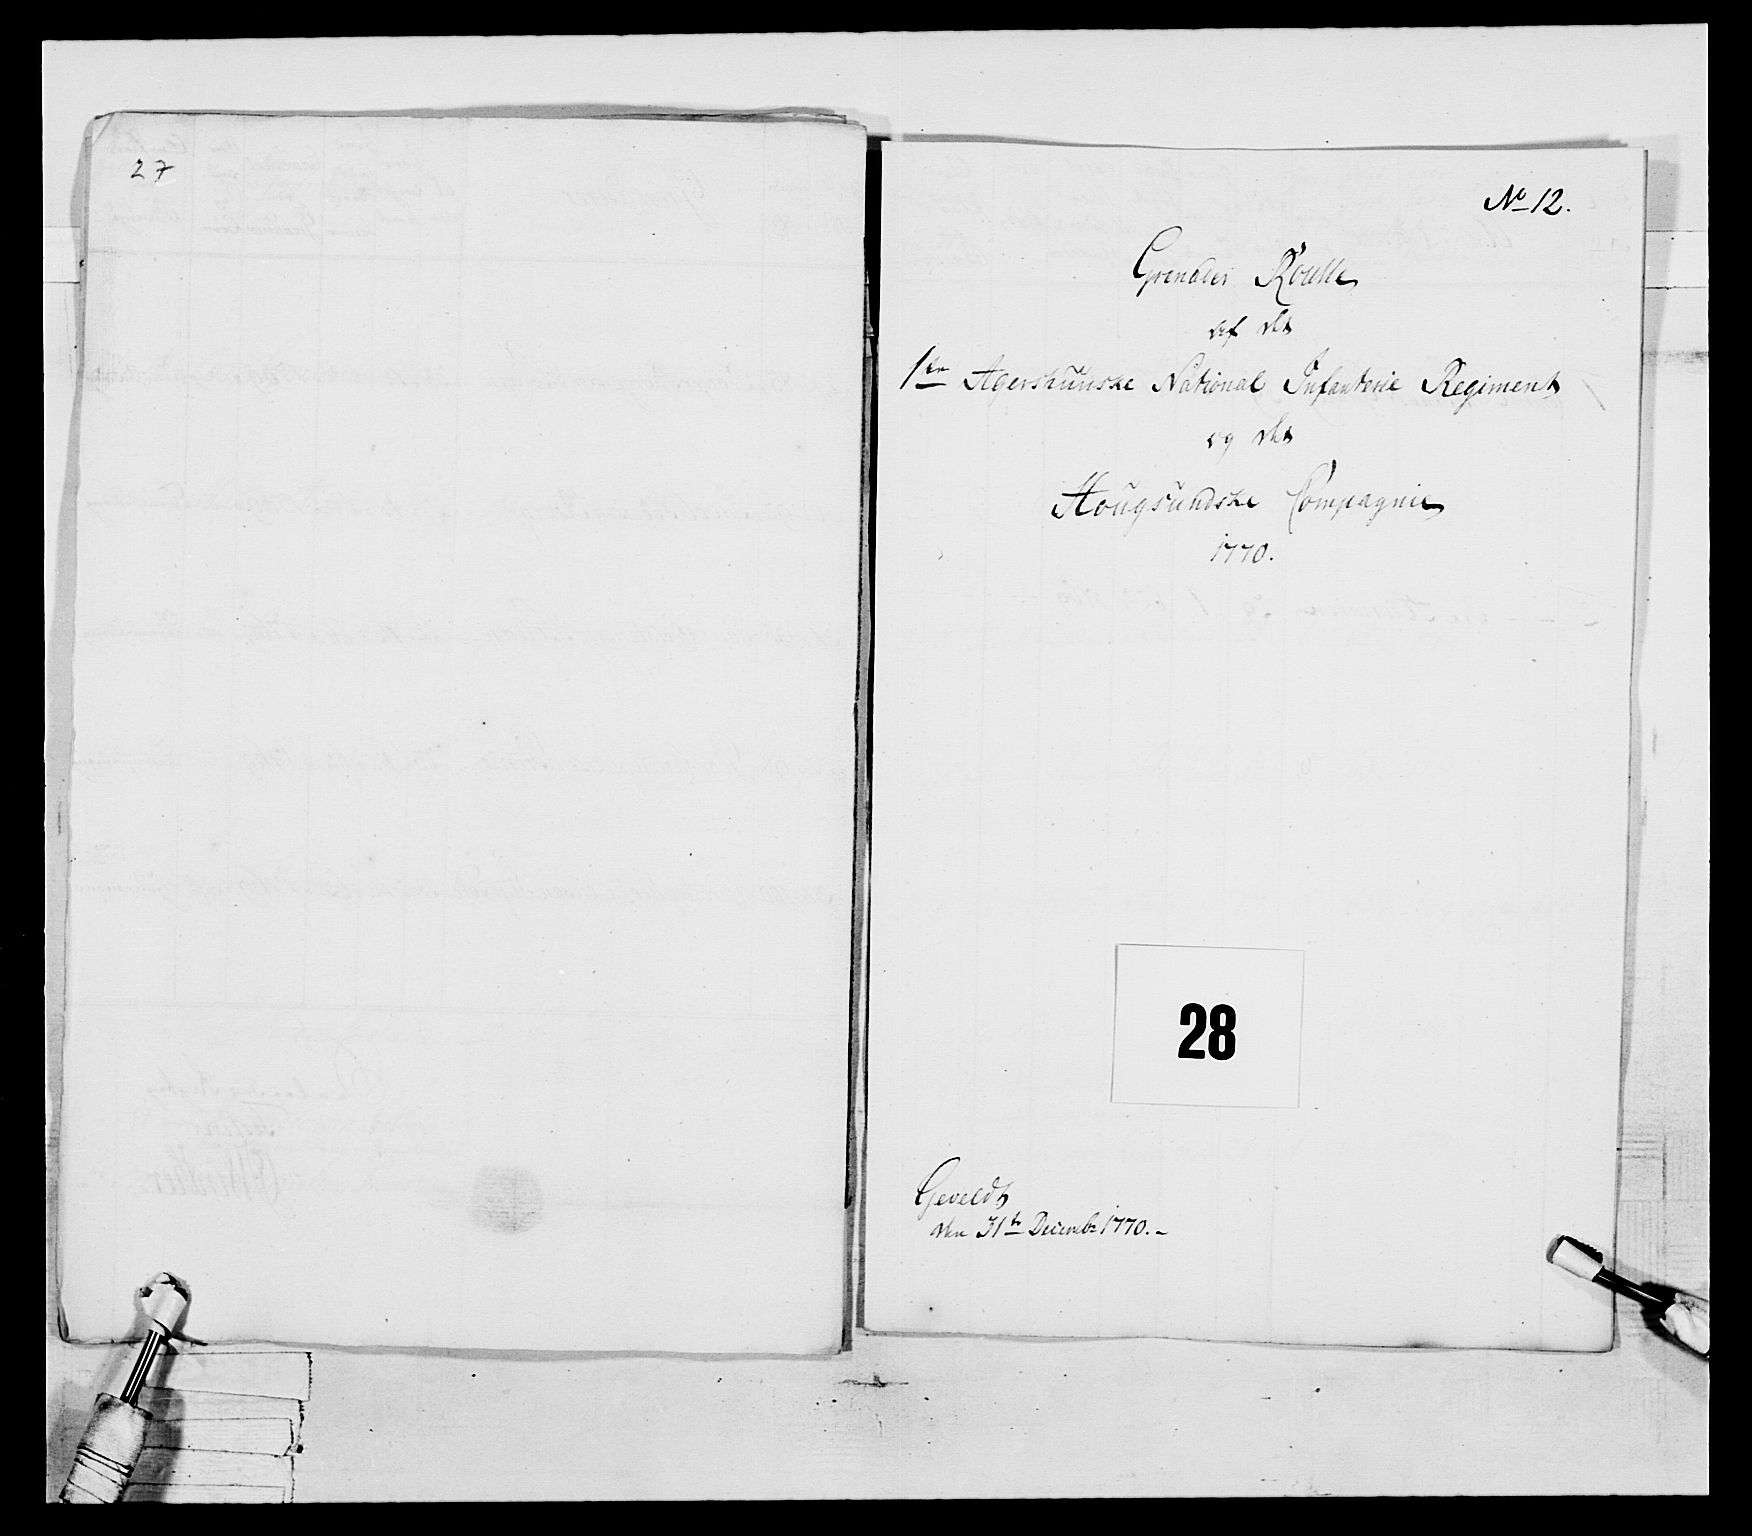 27
No 12.
Grenader Roulle
af det
1ste Agershuuske National Infanterie Regiment
og det
Hougsundske Compagnie
1770.
28
Geveldt
den 31te Decembr 1770.-